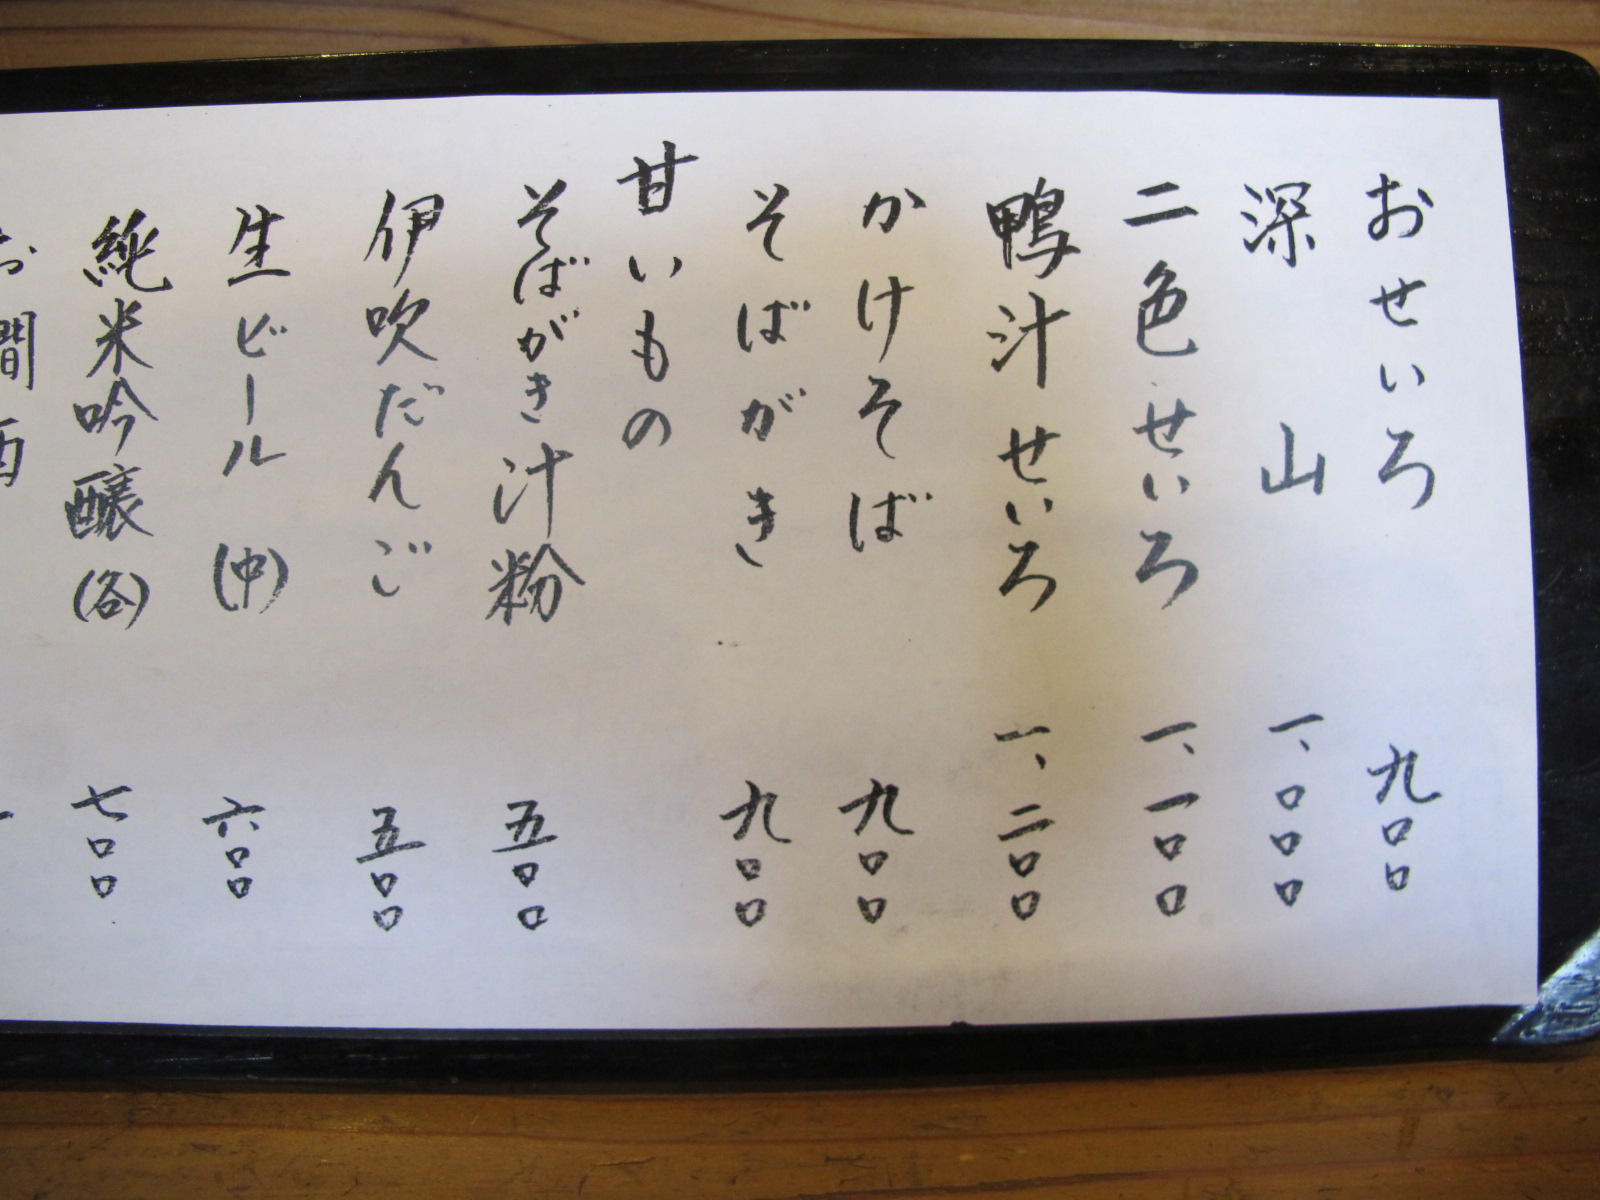 おせいろ 九〇〇
深山 一、〇〇〇
二色せいろ 一、一〇〇
鴨汁せいろ 一、二〇〇
かけそば 九〇〇
そばがき 九〇〇
甘いもの
そばがき汁粉 五〇〇
伊吹だんご 五〇〇
生ビール(中) 六〇〇
純米吟醸(各) 七〇〇